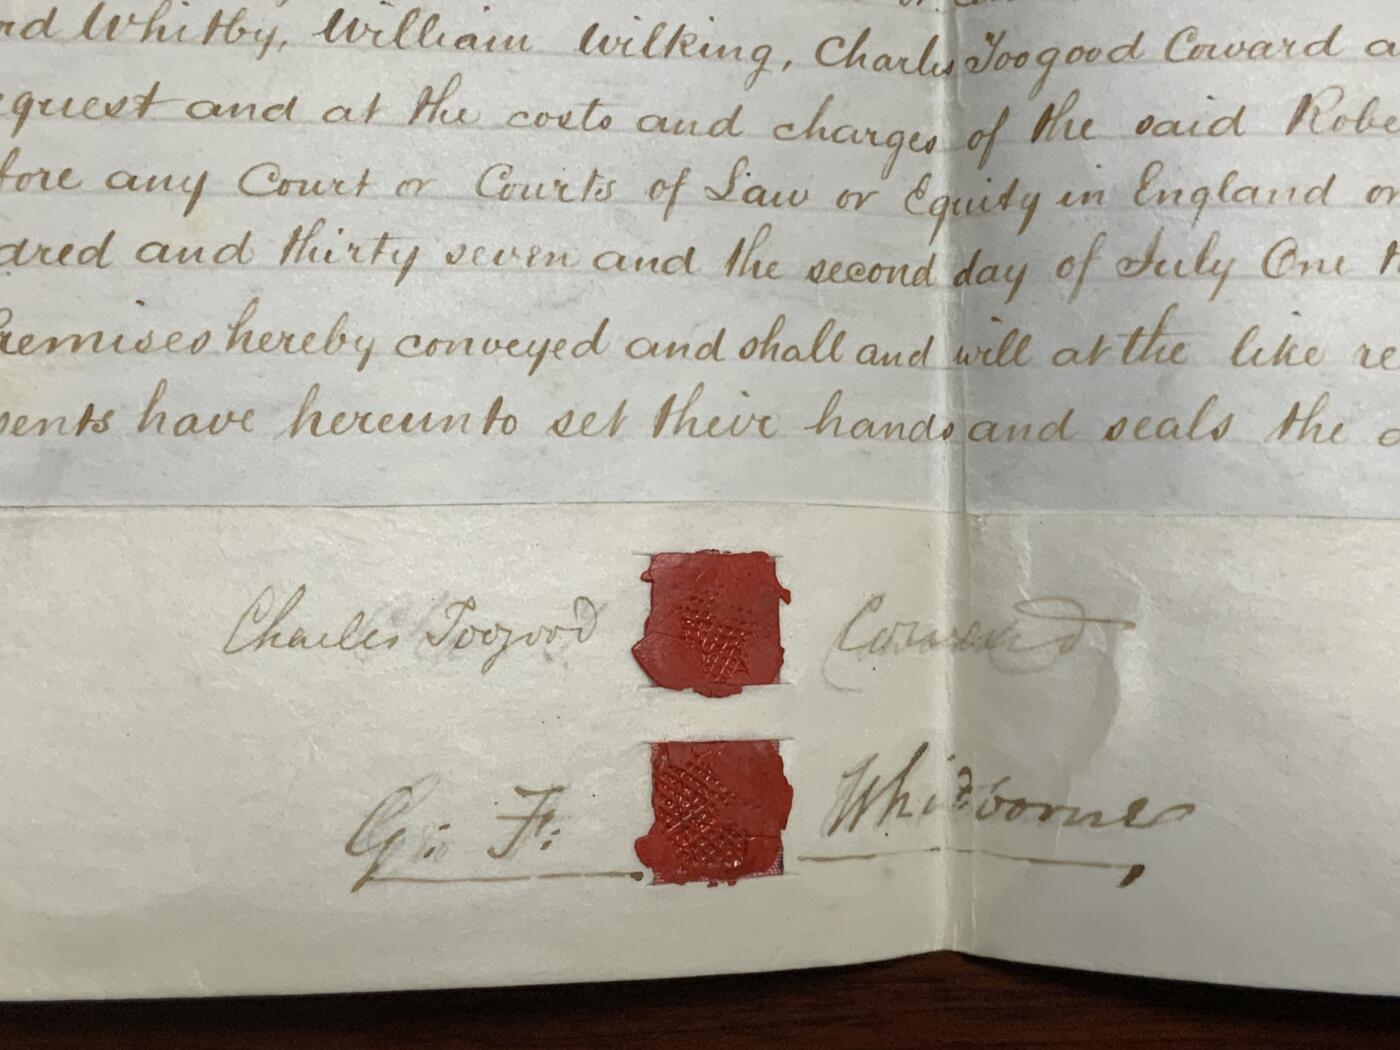 rd Whitby, William Wilking, Charles Toogood Coward a
equest and at the costs and charges of the said Robe
fore any Court or Courts of Law or Equity in England or
dred and thirty seven and the second day of July One
remises hereby conveyed and shall and will at the like re
sents have hereunto set their hands and seals the
Charles Toogood Coward
G: F: Whitborne